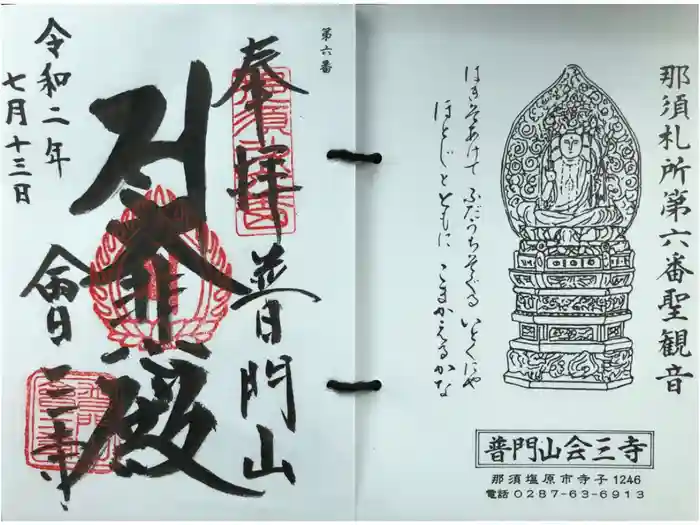 那須札所第六番聖観音
はきそあけて ふだうちそぐる いとくにや
ほとじとともに こまかえるかな
普門山会三寺
那須塩原市寺子1246
電話0287-63-6913
第六番
奉拝
普門山
殿
會三寺
令和二年
七月十三日